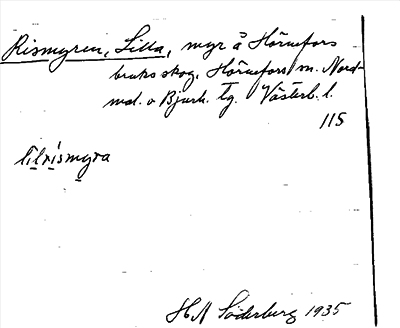 Rismyren, Lilla, myr å Hörnefors
bruks skog, Hörnefors m. Nord-
mal. o Bjurh. tg. Västerb. l.
115
lìlrísmyra
H A Söderberg 1935